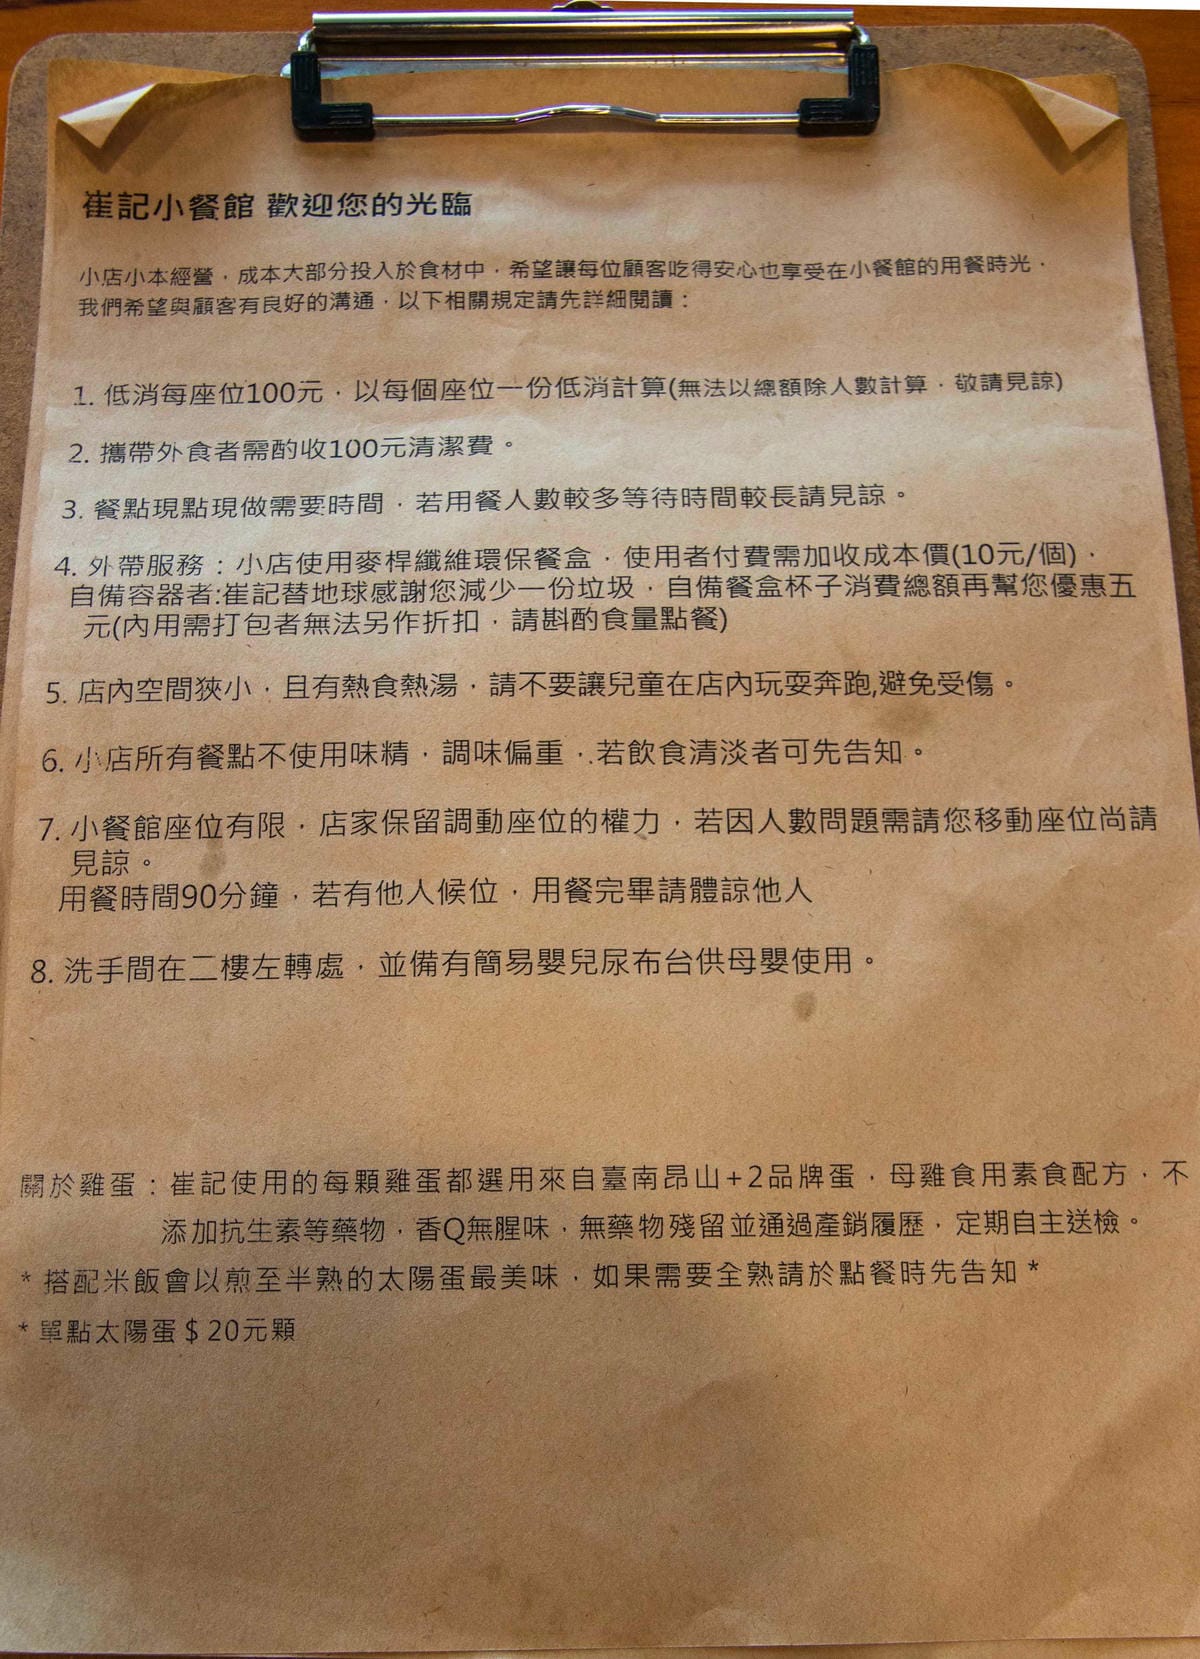 崔記小餐館 歡迎您的光臨
小店小本經營，成本大部分投入於食材中，希望讓每位顧客吃得安心也享受在小餐館的用餐時光，
我們希望與顧客有良好的溝通，以下相關規定請先詳細閱讀：
1. 低消每座位100元，以每個座位一份低消計算(無法以總額除人數計算，敬請見諒)
2. 攜帶外食者需酌收100元清潔費。
3. 餐點現點現做需要時間，若用餐人數較多等待時間較長請見諒。
4. 外帶服務：小店使用麥桿纖維環保餐盒，使用者付費需加收成本價(10元/個)，
自備容器者:崔記替地球感謝您減少一份垃圾，自備餐盒杯子消費總額再幫您優惠五
元(內用需打包者無法另作折扣，請斟酌食量點餐)
5. 店內空間狹小，且有熱食熱湯，請不要讓兒童在店內玩耍奔跑,避免受傷。
6. 小店所有餐點不使用味精，調味偏重，.若飲食清淡者可先告知。
7. 小餐館座位有限，店家保留調動座位的權力，若因人數問題需請您移動座位尚請
見諒。
用餐時間90分鐘，若有他人候位，用餐完畢請體諒他人
8. 洗手間在二樓左轉處，並備有簡易嬰兒尿布台供母嬰使用。
關於雞蛋：崔記使用的每顆雞蛋都選用來自臺南昂山+2品牌蛋，母雞食用素食配方，不
添加抗生素等藥物，香Q無腥味，無藥物殘留並通過產銷履歷，定期自主送檢。
* 搭配米飯會以煎至半熟的太陽蛋最美味，如果需要全熟請於點餐時先告知 *
* 單點太陽蛋＄20元顆